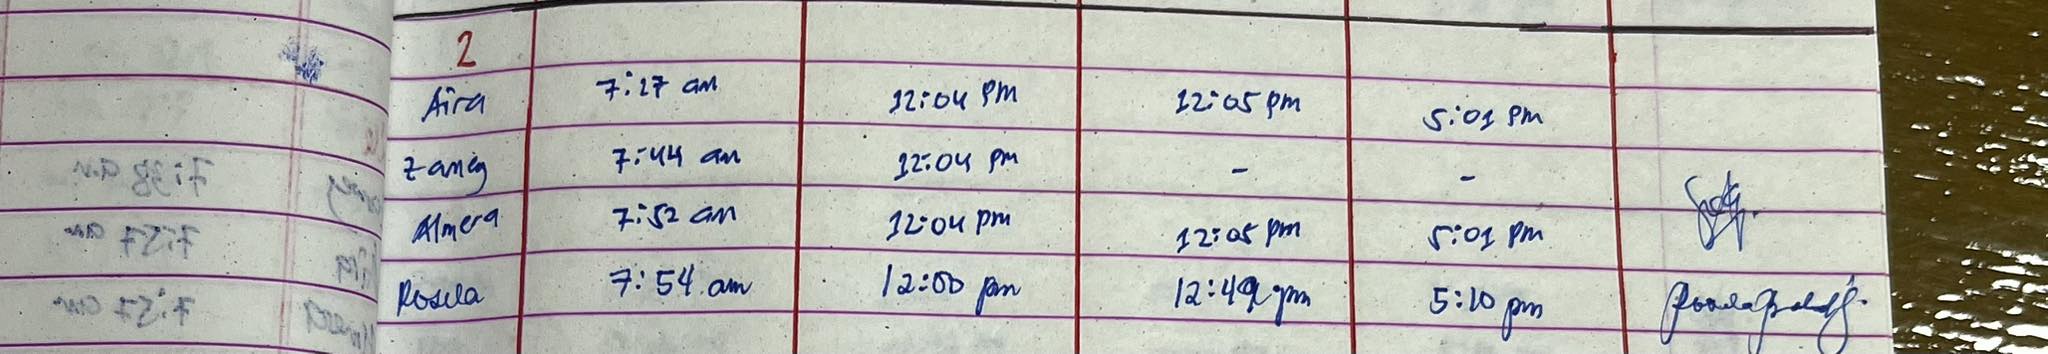 2
Aira 7:27 am 12:04 pm 12:05 pm 5:01 pm
Zaney 7:44 am 12:04 pm - -
Almera 7:52 am 12:04 pm 12:05 pm 5:01 pm
Rosela 7:54 am 12:00 pm 12:49 pm 5:10 pm